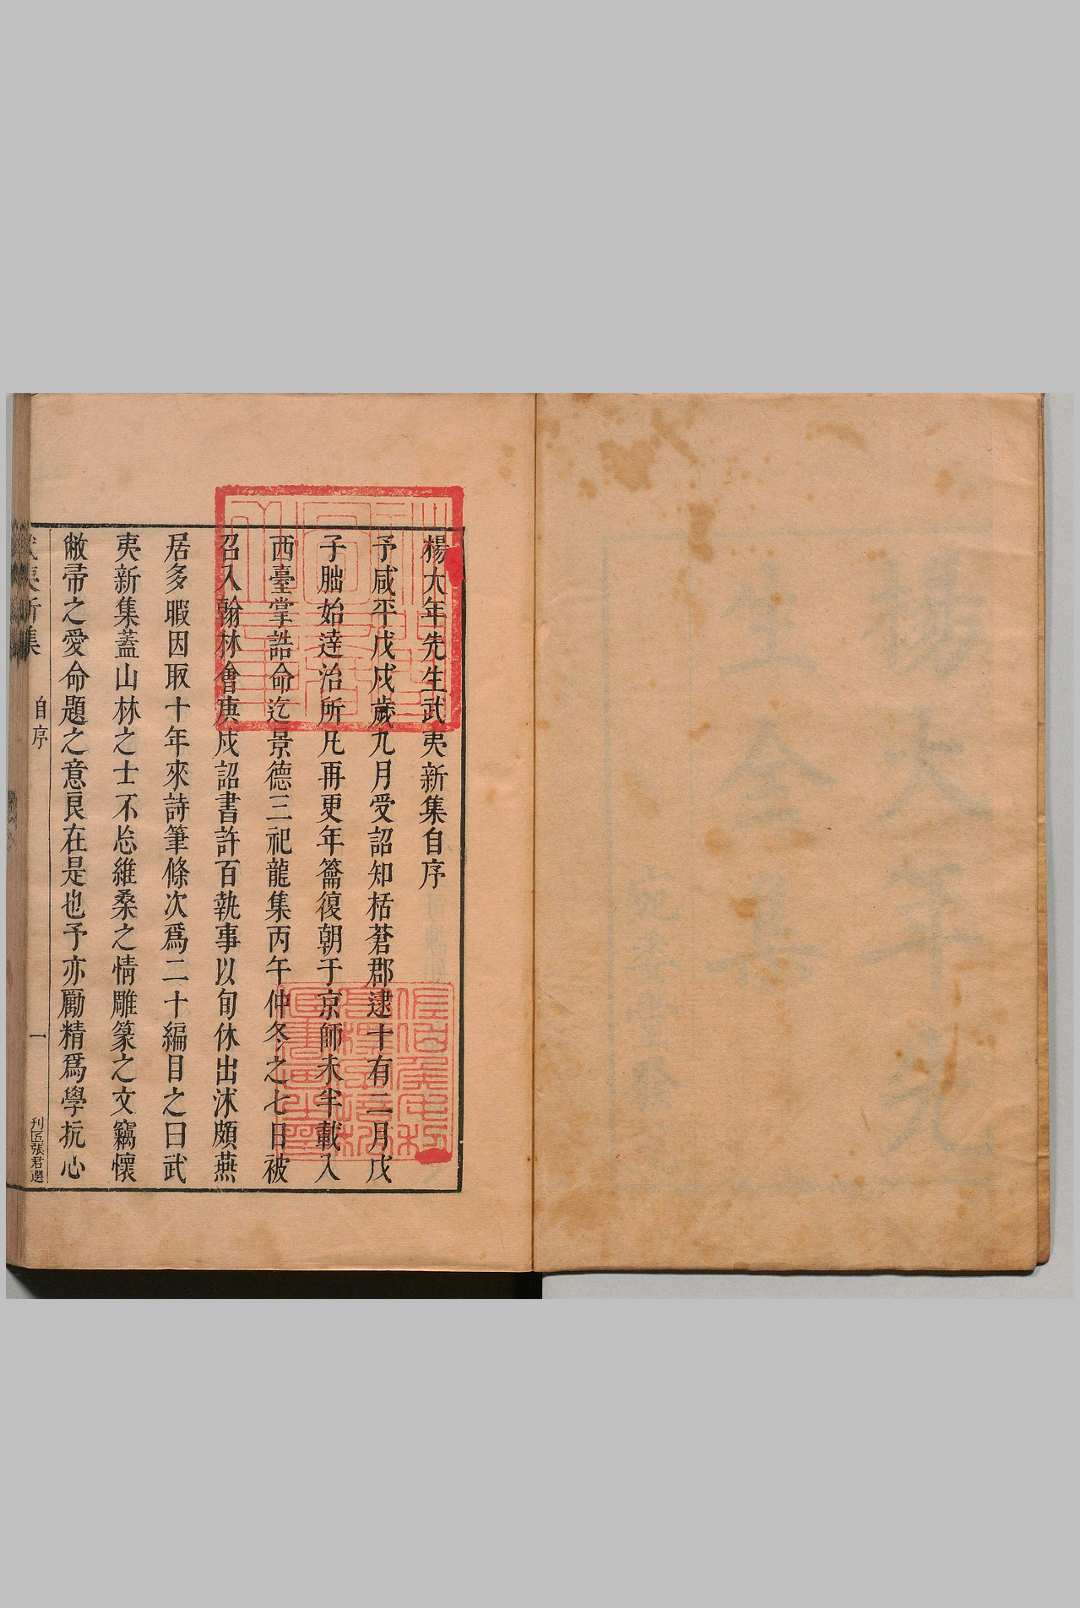 楊大年先生武夷新集自序
予咸平戊戌歲九月受詔知栝蒼郡逮十有二月戊
子朏始達治所凡再更年籥復朝于京師未半載入
西臺掌誥命迄景德三祀龍集丙午仲冬之七日被
召入翰林會庚戌詔書許百執事以旬休出沐頗燕
居多暇因取十年來詩筆條次爲二十編目之曰武
夷新集蓋山林之士不忘維桑之情雕篆之文竊懷
敝帚之愛命題之意良在是也予亦勵精爲學抗心
武夷新集
自序
一
刊匠張君選